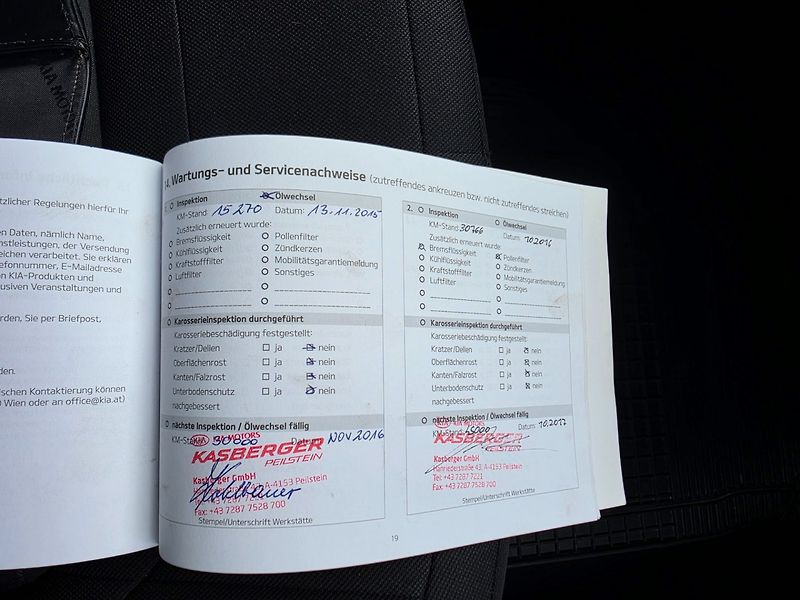 KIA MOTORS
tzlicher Regelungen hierfür Ihr
en Daten, nämlich Name,
nstleistungen, der Versendung
eichen verarbeitet. Sie erklären
efonnummer, E-Mailadresse
on KIA-Produkten und
usiven Veranstaltungen und
rden, Sie per Briefpost,
den.
ischen Kontaktierung können
0 Wien oder an office@kia.at)
14. Wartungs- und Servicenachweise (zutreffendes ankreuzen bzw. nicht zutreffendes streichen)
Inspektion Ölwechsel
KM-Stand: 15270 Datum: 13.11.2015
Zusätzlich erneuert wurde:
Bremsflüssigkeit Pollenfilter
Kühlflüssigkeit Zündkerzen
Kraftstofffilter Mobilitätsgarantiemeldung
Luftfilter Sonstiges
Karosserieinspektion durchgeführt
Karosseriebeschädigung festgestellt:
Kratzer/Dellen ja nein
Oberflächenrost ja nein
Kanten/Falzrost ja nein
Unterbodenschutz ja nein
nachgebessert
nächste Inspektion / Ölwechsel fällig
KM-Stand: 30000 Datum: NOV 2016
KIA KIA MOTORS
KASBERGER
PEILSTEIN
Kasberger GmbH
A-4153 Peilstein
Tel: +43 7287 7221
Fax: +43 7287 7528 700
Stempel/Unterschrift Werkstätte
2. Inspektion Ölwechsel
KM-Stand: 30766 Datum: 10.2016
Zusätzlich erneuert wurde:
Bremsflüssigkeit Pollenfilter
Kühlflüssigkeit Zündkerzen
Kraftstofffilter Mobilitätsgarantiemeldung
Luftfilter Sonstiges
Karosserieinspektion durchgeführt
Karosseriebeschädigung festgestellt:
Kratzer/Dellen ja nein
Oberflächenrost ja nein
Kanten/Falzrost ja nein
Unterbodenschutz ja nein
nachgebessert
nächste Inspektion / Ölwechsel fällig
KM-Stand: 45000 Datum: 10.2017
KIA KIA MOTORS
KASBERGER
PEILSTEIN
Kasberger GmbH
Hanriederstraße 43, A-4153 Peilstein
Tel: +43 7287 7221
Fax: +43 7287 7528 700
Stempel/Unterschrift Werkstätte
19